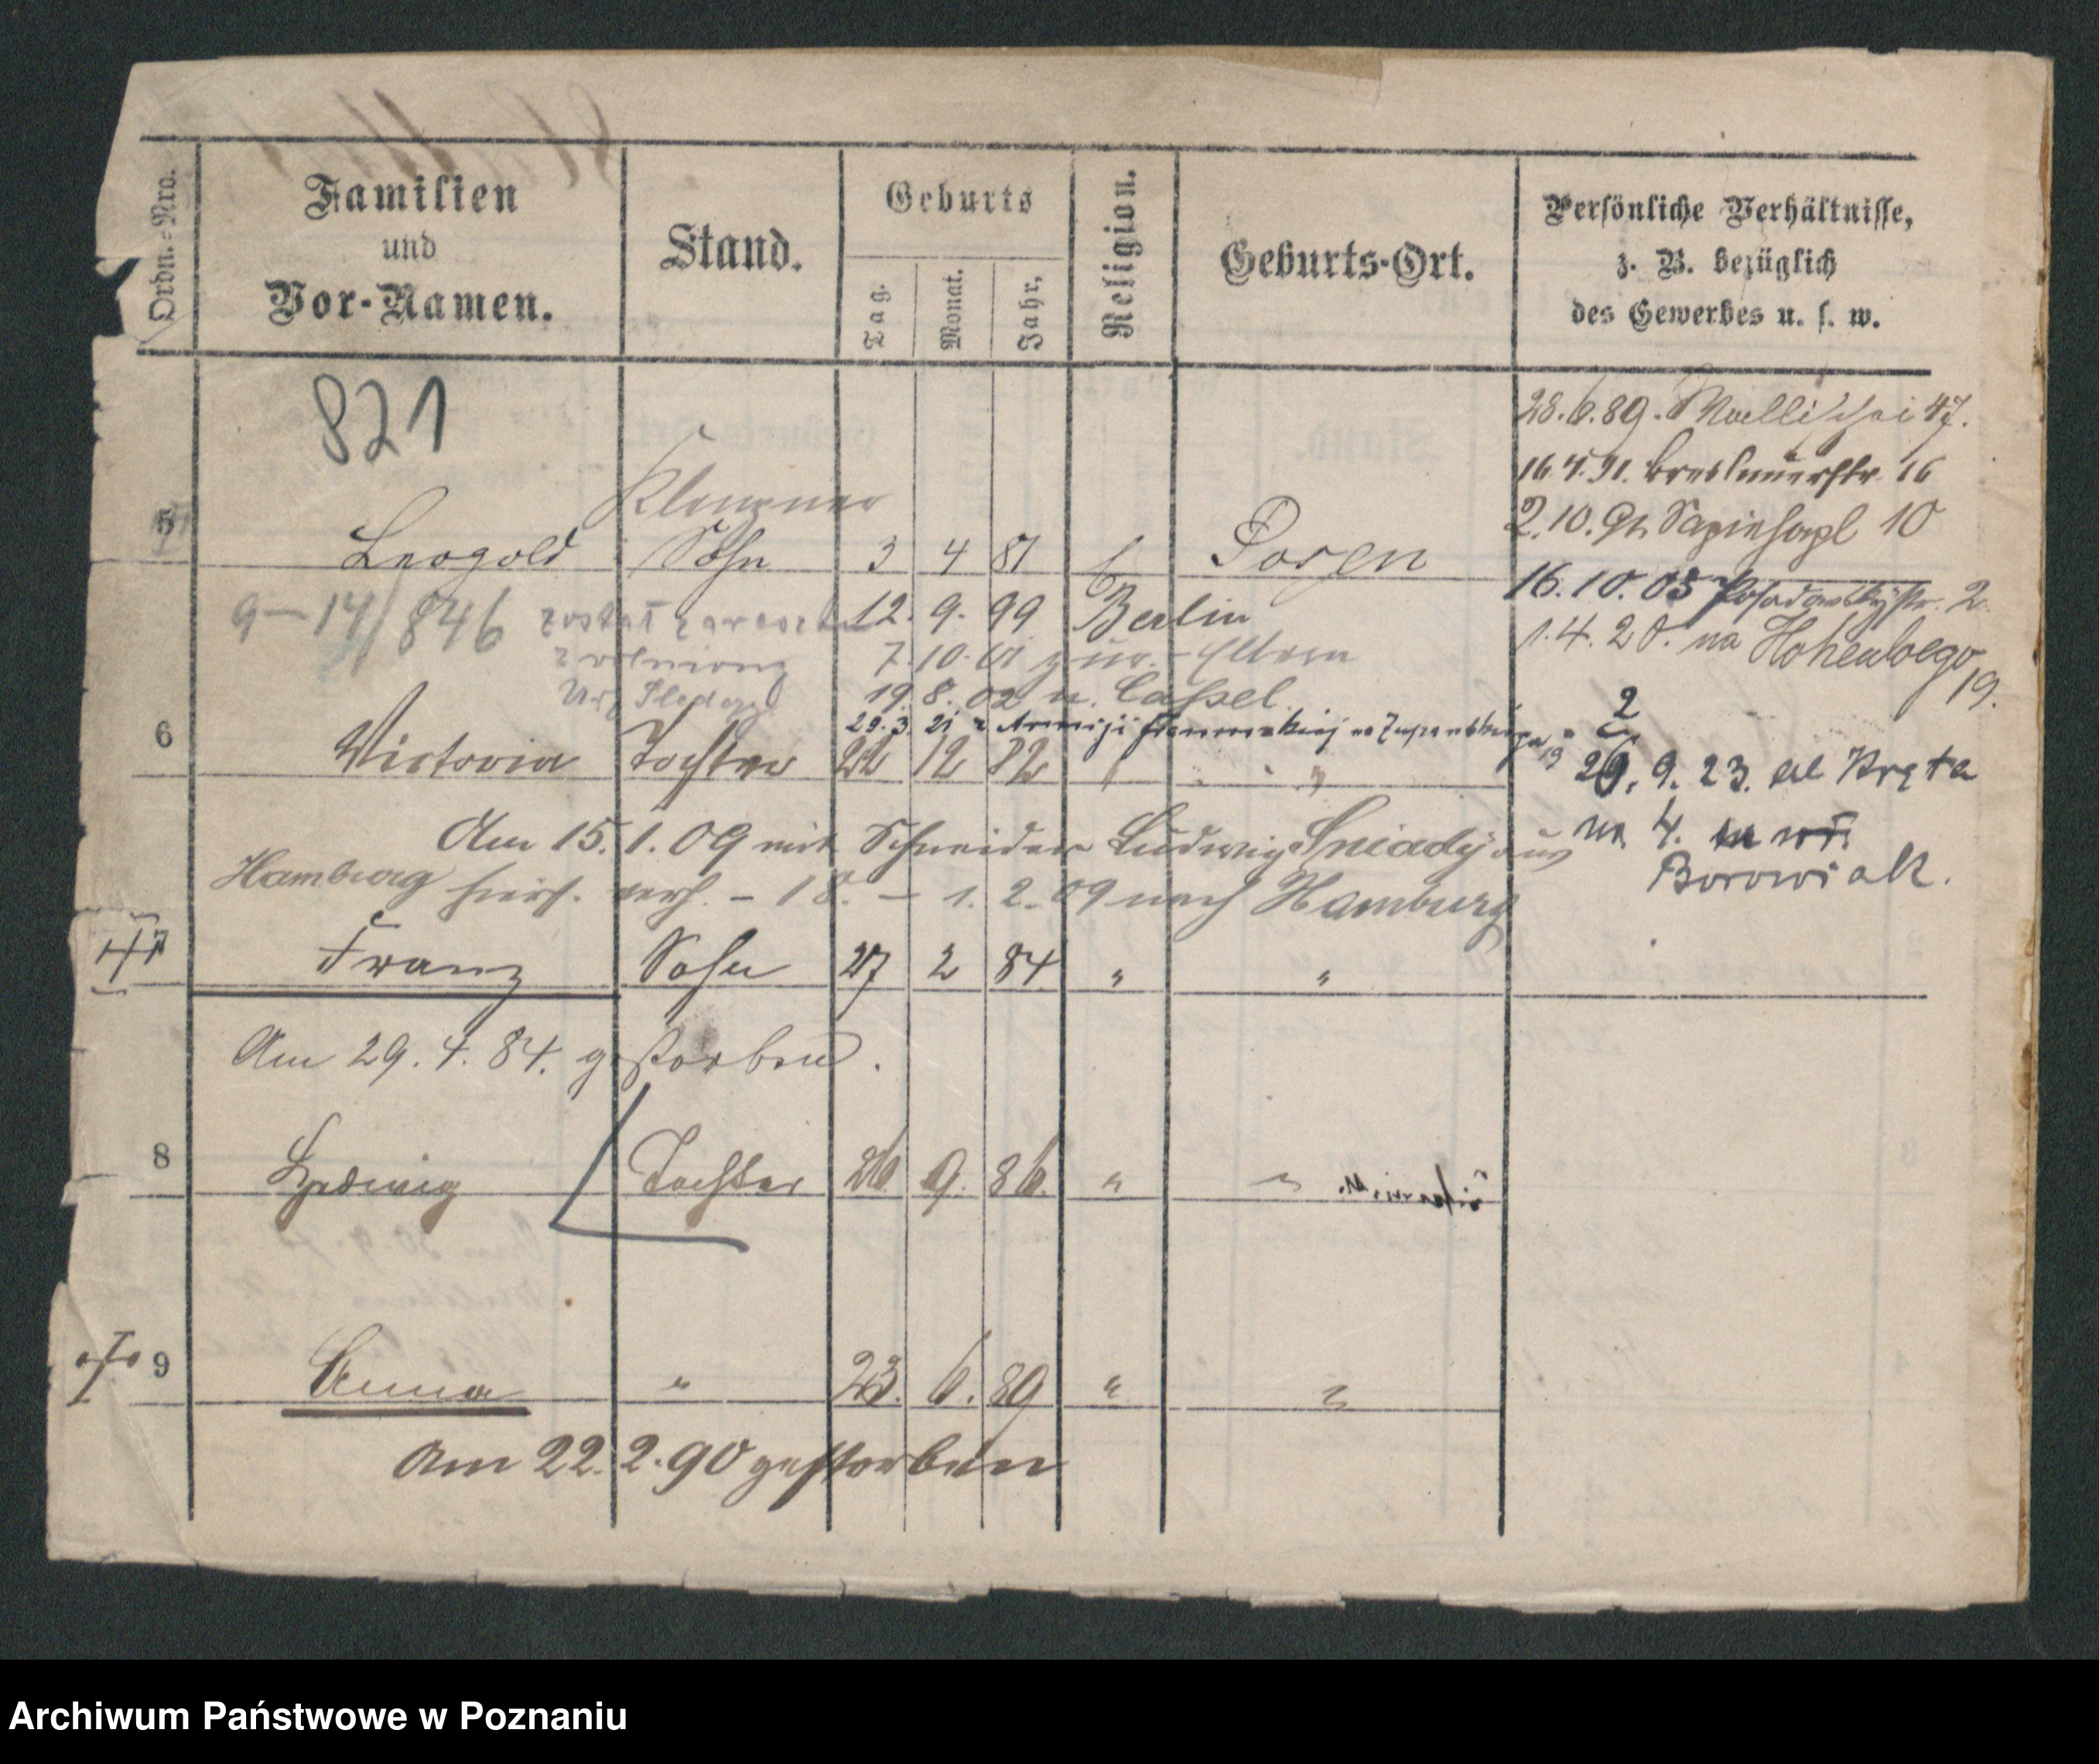 Ordn.-Nro.
Familien
und
Vor-Namen.
Stand.
Geburts
Tag.
Monat.
Jahr,
Religion.
Geburts-Ort.
Persönliche Verhältnisse,
z. B. bezüglich
des Gewerbes u. s. w.
821
28.6.89. Wallischei 47.
16.4.91. Breslauerstr. 16
2.10. Sapiehapl 10
16.10.05 Posadowskystr. 2
1.4.20. na Hohenloego 19.
Klempner
5 Leopold Sohn 3 4 81 Posen
9-14/846 został
12. 9. 99 Berlin
7.10.01 zur. Eltern
19.8.02 n. Cassel
29.3.21 z Armiji
6 Victoria Tochter 22 12 82 " "
2
26.9.23. ul Kręta
na 4.
Borowiak.
Am 15.1.09 mit Schneider Ludwig Sniady aus
Hamburg hiers. verh. - 18. - 1.2.09 nach Hamburg
7 Franz Sohn 27 2 84 " "
Am 29.4.84. gestorben.
8 Hedwig Tochter 26 9. 86. " "
9 Anna " 23. 6. 89 " "
Am 22.2.90 gestorben
Archiwum Państwowe w Poznaniu